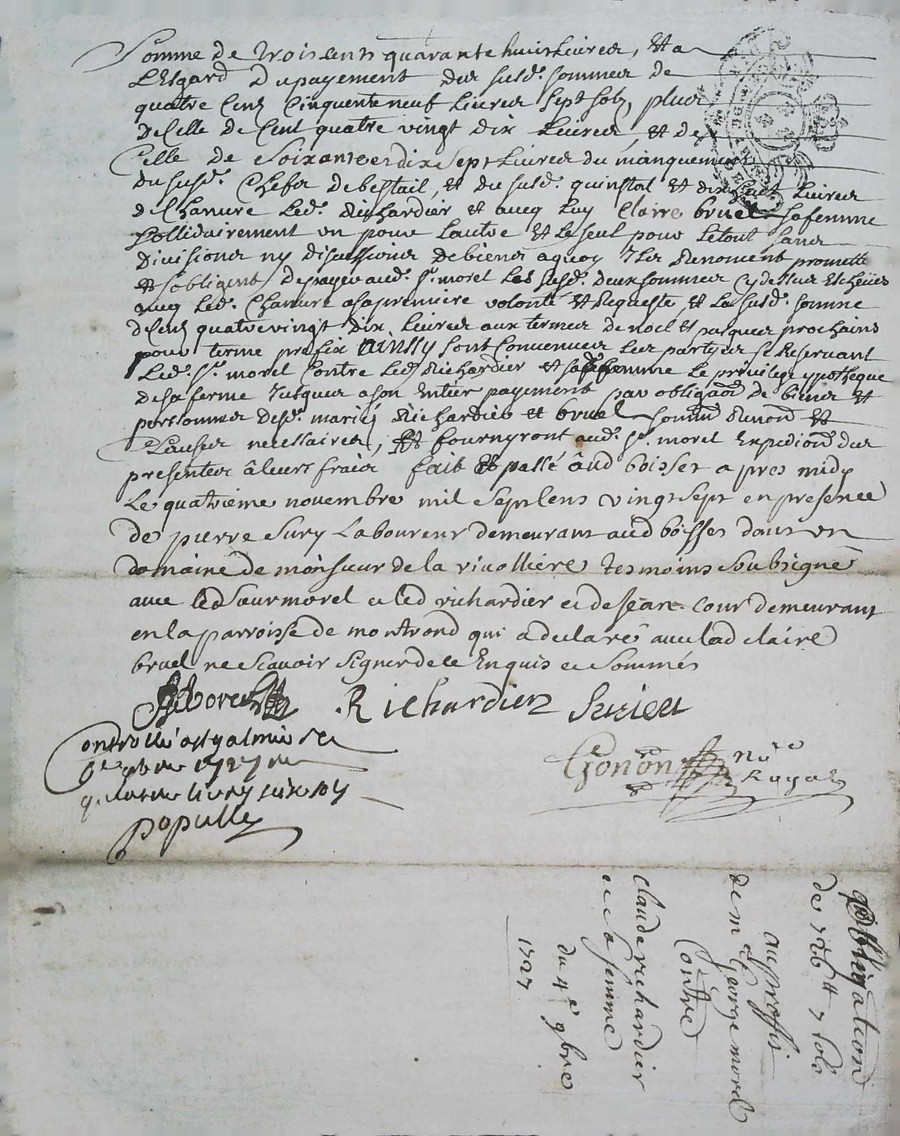 Somme de troiscents quarante huit Livres, Et a
L'Esgard du payement des susd. sommes de
quatre Cens Cinquente neuf Livres sept solz, plus
de Celle de Cent quatre vingt dix Livres, et de
Celle de Soixante et dix Sept Livres du manquement
du susd. Chefs de bestail, et du susd. quinstal et dix huit Livres
de Chanvre Led. Richardier et avecq Luy Claire bruel sa femme
sollidairement un pour Lautre et Le seul pour Le tout sans
division ny discussion de biens a quoy Ils Renoncent promette
et s'obligent de payer aud. Sr. morel Les susd. deux sommes Cy dessus Escheües
avecq Led. Chanvre a sa premiere volonté et Requeste, et La susd. somme
de Cens quatre vingt dix Livres aux termes de noel et pasques prochains
pour terme prefix ainssy sont Convenues Les partyes se Reservant
Led. Sr. morel Contre Led. Richardier et sa femme Le privilege ypotheque
de sa ferme Jusques a son Entier payement par obligaon de biens et
personnes desd. mariés Richardier et bruel
Clauses necessaires, Et fournyront aud. Sr. morel Expedion des
presentes à leurs frais fait Et passé aud boisset apres midy
Le quatrième novembre mil Sept Cens vingt Sept en presence
de pierre Sury Laboureur demeurant aud boisset dans un
domaine de monsieur de la rivolliere tesmoins Soubsigné
avec led Sieur morel et led richardier et de Jean Cour demeurant
en la parroisse de montrond qui a declaré avec lad claire
bruel ne Scavoir Signer de ce Enquis et Sommés
Richardier Surieu
Controllé a st galmier le
9bre 1727
quatre livres seize sols
populle
Gonon Nre
Royal
obligation
de 726 tt 7 sols
au proffit
de m George morel
Contre
claude richardier
et sa femme
du 4e 9bre
1727